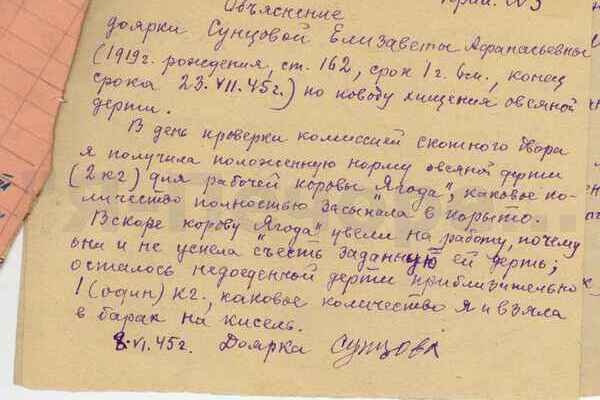 Объяснение
доярки Сунцовой Елизаветы Афанасьевны
(1919г. рождения, ст. 162, срок 1г. 6м., конец
срока 23.VII.45г.) по поводу хищения овсяной
дерти.
В день проверки комиссией скотного двора
я получила положенную норму овсяной дерти
(2 кг) для рабочей коровы "Ягода", каковое ко-
личество полностью засыпала в корыто.
Вскоре корову "Ягода" увели на работу, почему
она и не успела съесть заданную ей дерть;
осталось недоеденной дерти приблизительно
1 (один) кг., каковое количество я и взяла
в барак на кисель.
8.VI.45г. Доярка Сунцова